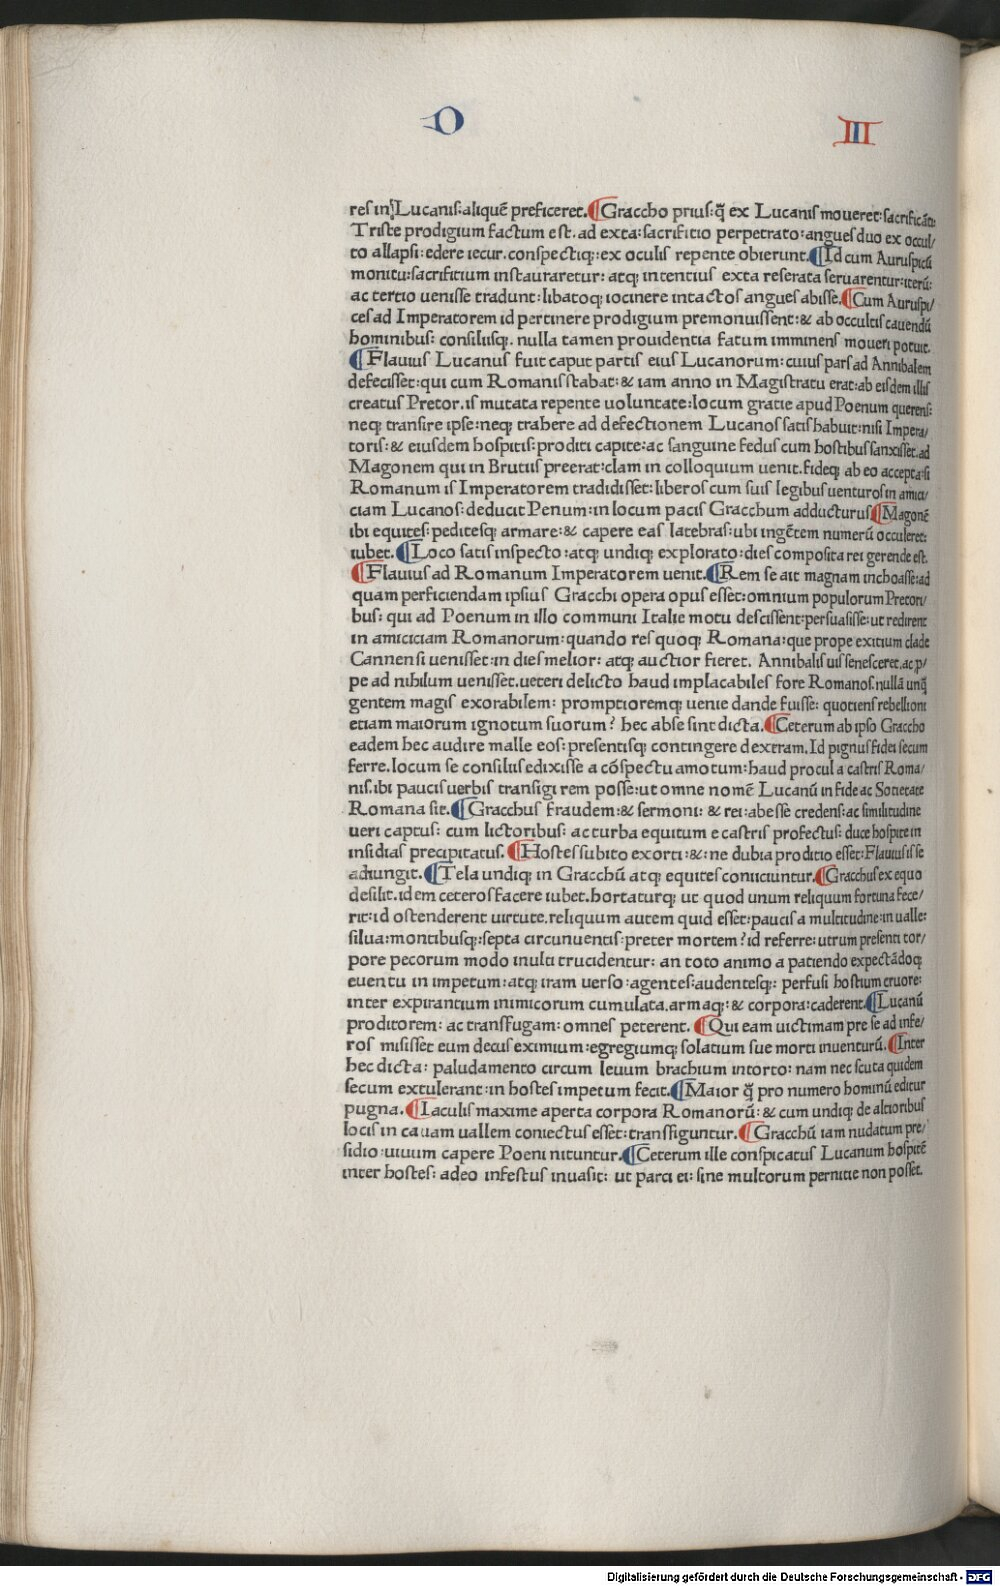 D III
res in Lucanis: aliquē preficeret. ¶Graccho prius: q̄ ex Lucanis moueret: sacrificāti:
Triste prodigium factum est. ad exta: sacrifitio perpetrato: angues duo ex occul/
to allapsi: edere iecur. conspectiq;: ex oculis repente obierunt. ¶Id cum Auruspicū
monitu: sacrifitium instauraretur: atq; intentius exta reserata seruarentur: iterū:
ac tertio uenisse tradunt: libatoq; iocinere intactos angues abisse. ¶Cum Auruspi/
ces ad Imperatorem id pertinere prodigium premonuissent: & ab occultis cauendū
hominibus: consiliisq;. nulla tamen prouidentia fatum imminens moueri potuit.
¶Flauius Lucanus fuit caput partis eius Lucanorum: cuius pars ad Annibalem
defecisset: qui cum Romanis stabat: & iam anno in Magistratu erat: ab eisdem illis
creatus Pretor. is mutata repente uoluntate: locum gratie apud Poenum querens:
neq; transire ipse: neq; trahere ad defectionem Lucanos satis habuit: nisi Impera/
toris: & eiusdem hospitis: proditi capite: ac sanguine fedus cum hostibus sanxisset. ad
Magonem qui in Brutiis preerat: clam in colloquium uenit. fideq; ab eo accepta: si
Romanum is Imperatorem tradidisset: liberos cum suis legibus uenturos in amici/
ciam Lucanos: deducit Penum: in locum pacis Gracchum adducturus ¶Magonē
ibi equites: peditesq; armare: & capere eas latebras: ubi ingētem numerū occuleret:
iubet. ¶Loco satis inspecto: atq; undiq; explorato: dies composita rei gerende est.
¶Flauius ad Romanum Imperatorem uenit. ¶Rem se ait magnam inchoasse: ad
quam perficiendam ipsius Gracchi opera opus esset: omnium populorum Pretori/
bus: qui ad Poenum in illo communi Italie motu descissent: persuasisse: ut redirent
in amiciciam Romanorum: quando res quoq; Romana: que prope exitium clade
Cannensi uenisset: in dies melior: atq; auctior fieret. Annibalis uis senesceret. ac p/
pe ad nihilum uenisset. ueteri delicto haud implacabiles fore Romanos. nullā unq̄
gentem magis exorabilem: promptioremq; uenie dande fuisse: quotiens rebellioni
etiam maiorum ignotum suorum? hec abse sint dicta. ¶Ceterum ab ipso Graccho
eadem hec audire malle eos: presentisq; contingere dextram. Id pignus fidei secum
ferre. locum se consiliis edixisse a cōspectu amotum: haud procul a castris Roma/
nis. ibi paucis uerbis transigi rem posse: ut omne nomē Lucanū in fide ac Societate
Romana sit. ¶Gracchus fraudem: & sermoni: & rei: abesse credens: ac similitudine
ueri captus: cum lictoribus: ac turba equitum e castris profectus: duce hospite in
insidias precipitatus. ¶Hostes subito exorti: &: ne dubia proditio esset: Flauius is se
adiungit. ¶Tela undiq; in Gracchū atq; equites coniiciuntur. ¶Gracchus ex equo
desilit. idem ceteros facere iubet. hortaturq; ut quod unum reliquum fortuna fece/
rit: id ostenderent uirtute. reliquum autem quid esset: paucis a multitudine: in ualle:
silua: montibusq;: septa circunuentis: preter mortem? id referre: utrum presenti tor/
pore pecorum modo inulti trucidentur: an toto animo a patiendo expectādoq;
euentu in impetum: atq; iram uerso: agentes: audentesq;: perfusi hostium cruore:
inter expirantium inimicorum cumulata. armaq;: & corpora: caderent. ¶Lucanū
proditorem: ac transfugam: omnes peterent. ¶Qui eam uictimam pre se ad infe/
ros misisset eum decus eximium: egregiumq; solatium sue morti inuenturū. ¶Inter
hec dicta: paludamento circum leuum brachium intorto: nam nec scuta quidem
secum extulerant: in hostes impetum fecit. ¶Maior q̄ pro numero hominū editur
pugna. ¶Iaculis maxime aperta corpora Romanorū: & cum undiq; de altioribus
locis in cauam uallem coniectus esset: transfiguntur. ¶Gracchū iam nudatum pre/
sidio: uiuum capere Poeni nituntur. ¶Ceterum ille conspicatus Lucanum hospitē
inter hostes: adeo infestus inuasit: ut parci ei: sine multorum pernitie non posset.
Digitalisierung gefördert durch die Deutsche Forschungsgemeinschaft - DFG